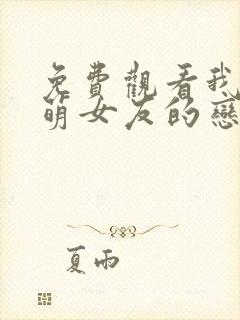 免費觀看我
萌女友的戀
夏雨